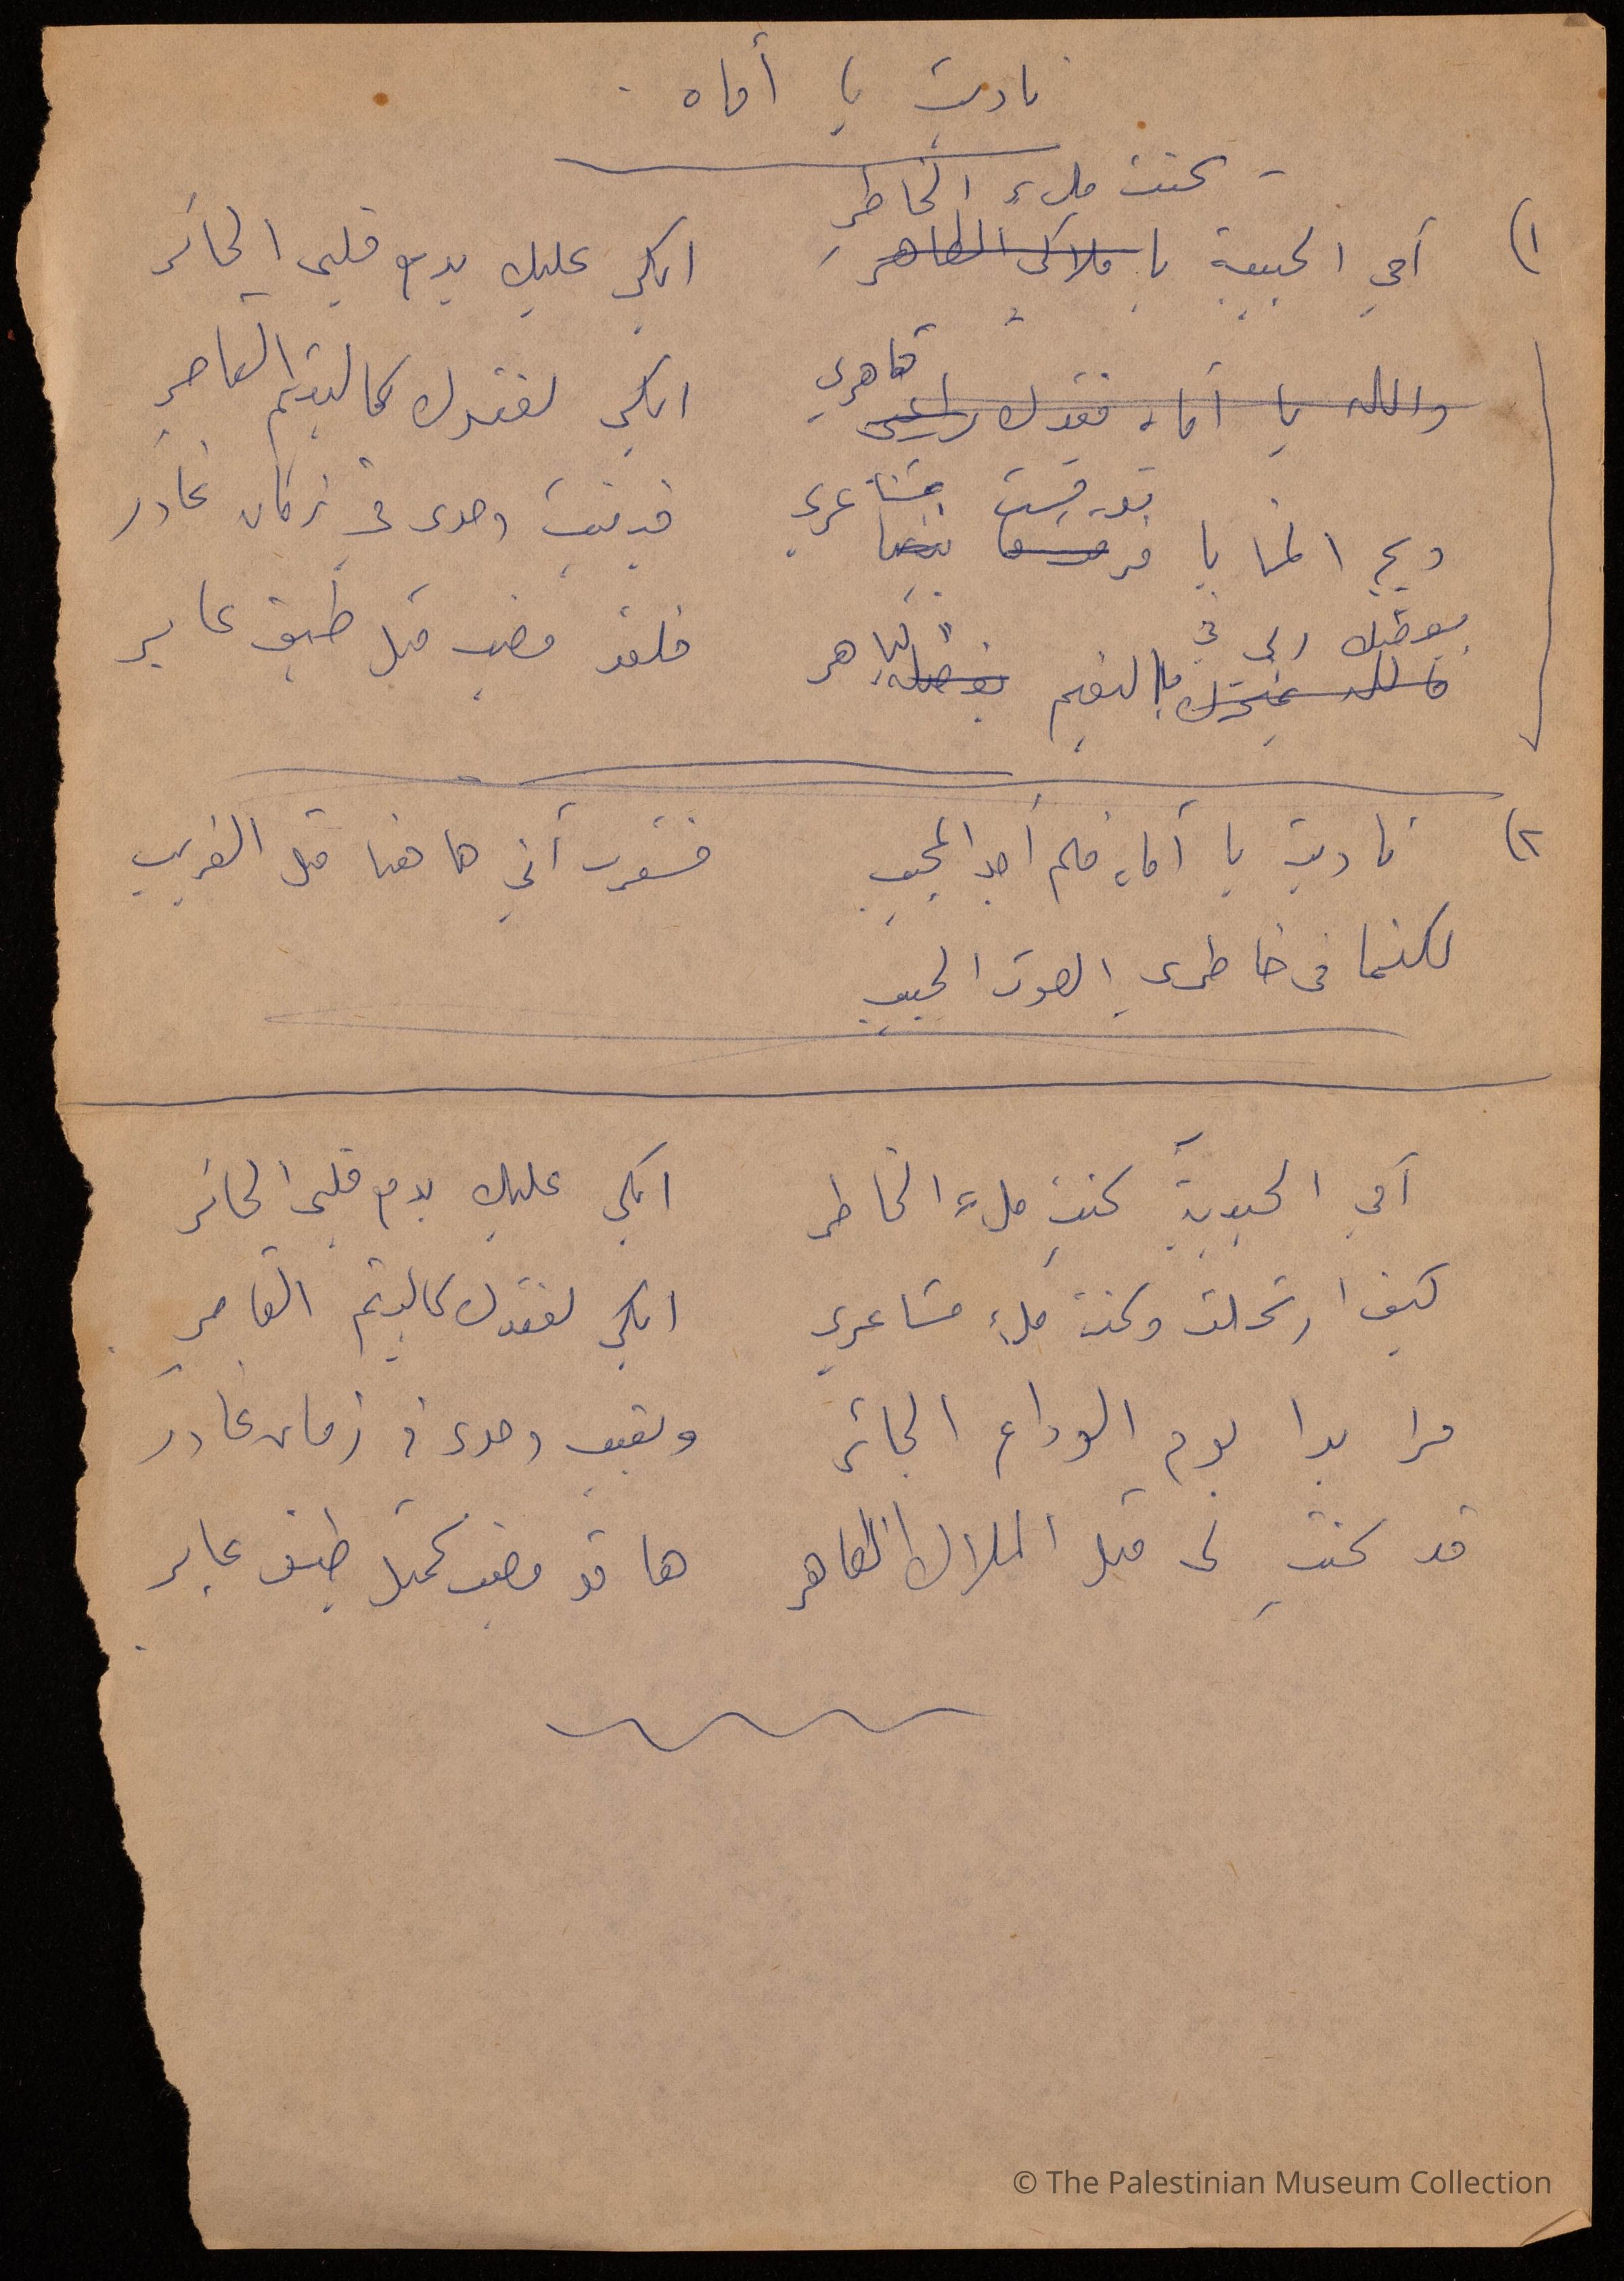 ناديت يا أماه
كنت ملء الخاطر
١) أمي الحبيبة يا ملاكي الطاهر ابكي عليك بدمع قلبي الحائر
قاهري
والله يا أماه فقدك ابكي لفقدك كاليتيم القاصر
مشاعري
ويح المنايا وحدي في زمان غادر
يعوضك ربي في
بالنعيم فلقد مضيت مثل طيف عابر
٢) ناديت يا أماه فلم أجد المجيب فشعرت أني ها هنا مثل الغريب
لكنما في خاطري الصوت الحبيب
أمي الحبيبة كنت ملء الخاطر ابكي عليك بدمع قلبي الحائر
كيف ارتحلت وكنت ملء مشاعري ابكي لفقدك كاليتيم القاصر
مرا بدا يوم الوداع الجائر وبقيت وحدي في زمان غادر
قد كنت لي مثل الملاك الطاهر ها قد مضيت كمثل طيف عابر
© The Palestinian Museum Collection